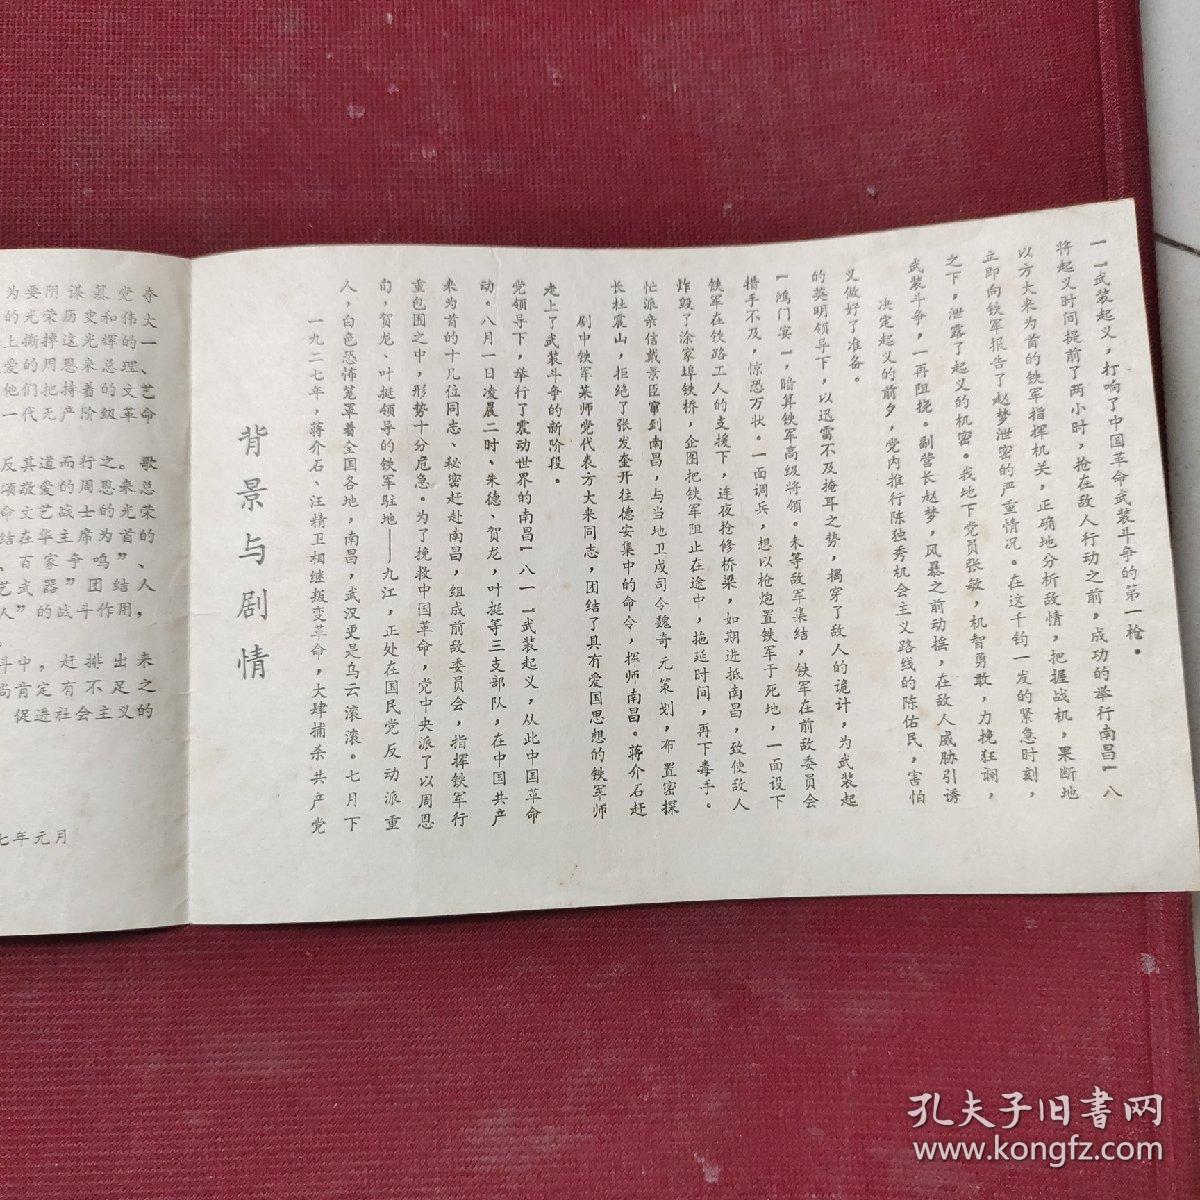 为要阴谋篡党夺
的光荣历史和伟大
上撕掉这光辉的一
爱的周恩来总理、
他们把持着的文艺
一代无产阶级革命
反其道而行之。歌
颂敬爱的周恩来总
命文艺战士的光荣
结在华主席为首的
、百家争鸣”、
艺武器”团结人
人”的战斗作用，
斗中，赶排出来
尚肯定有不足之
促进社会主义的
七年元月
背景与剧情
一九二七年，蒋介石、汪精卫相继叛变革命，大肆捕杀共产党
人，白色恐怖笼罩着全国各地，南昌，武汉更是乌云滚滚。七月下
旬，贺龙、叶挺领导的铁军驻地——九江，正处在国民党反动派重
重包围之中，形势十分危急。为了挽救中国革命，党中央派了以周恩
来为首的十几位同志、秘密赶赴南昌，组成前敌委员会，指挥铁军行
动。八月一日凌晨二时、朱德、贺龙，叶挺等三支部队，在中国共产
党领导下，举行了震动世界的南昌“八一”武装起义，从此中国革命
走上了武装斗争的新阶段。
剧中铁军某师党代表方大来同志，团结了具有爱国思想的铁军师
长杜震山，拒绝了张发奎开往德安集中的命令，挥师南昌。蒋介石赶
忙派亲信戴景臣窜到南昌，与当地卫戍司令魏奇元策划，布置密探
炸毁了涂家埠铁桥，企图把铁军阻止在途中，拖延时间，再下毒手。
铁军在铁路工人的支援下，连夜抢修桥梁，如期进抵南昌，致使敌人
措手不及，惊恐万状。一面调兵，想以枪炮置铁军于死地，一面设下
“鸿门宴”，暗算铁军高级将领。未等敌军集结，铁军在前敌委员会
的英明领导下，以迅雷不及掩耳之势，揭穿了敌人的诡计，为武装起
义做好了准备。
决定起义的前夕，党内推行陈独秀机会主义路线的陈佑民，害怕
武装斗争，一再阻挠。副营长赵梦，风暴之前动摇，在敌人威胁引诱
之下，泄露了起义的机密。我地下党员张敏，机智勇敢，力挽狂澜，
立即向铁军报告了赵梦泄密的严重情况。在这千钧一发的紧急时刻，
以方大来为首的铁军指挥机关，正确地分析敌情，把握战机，果断地
将起义时间提前了两小时，抢在敌人行动之前，成功的举行南昌“八
一”武装起义，打响了中国革命武装斗争的第一枪。
孔夫子旧书网
www.kongfz.com